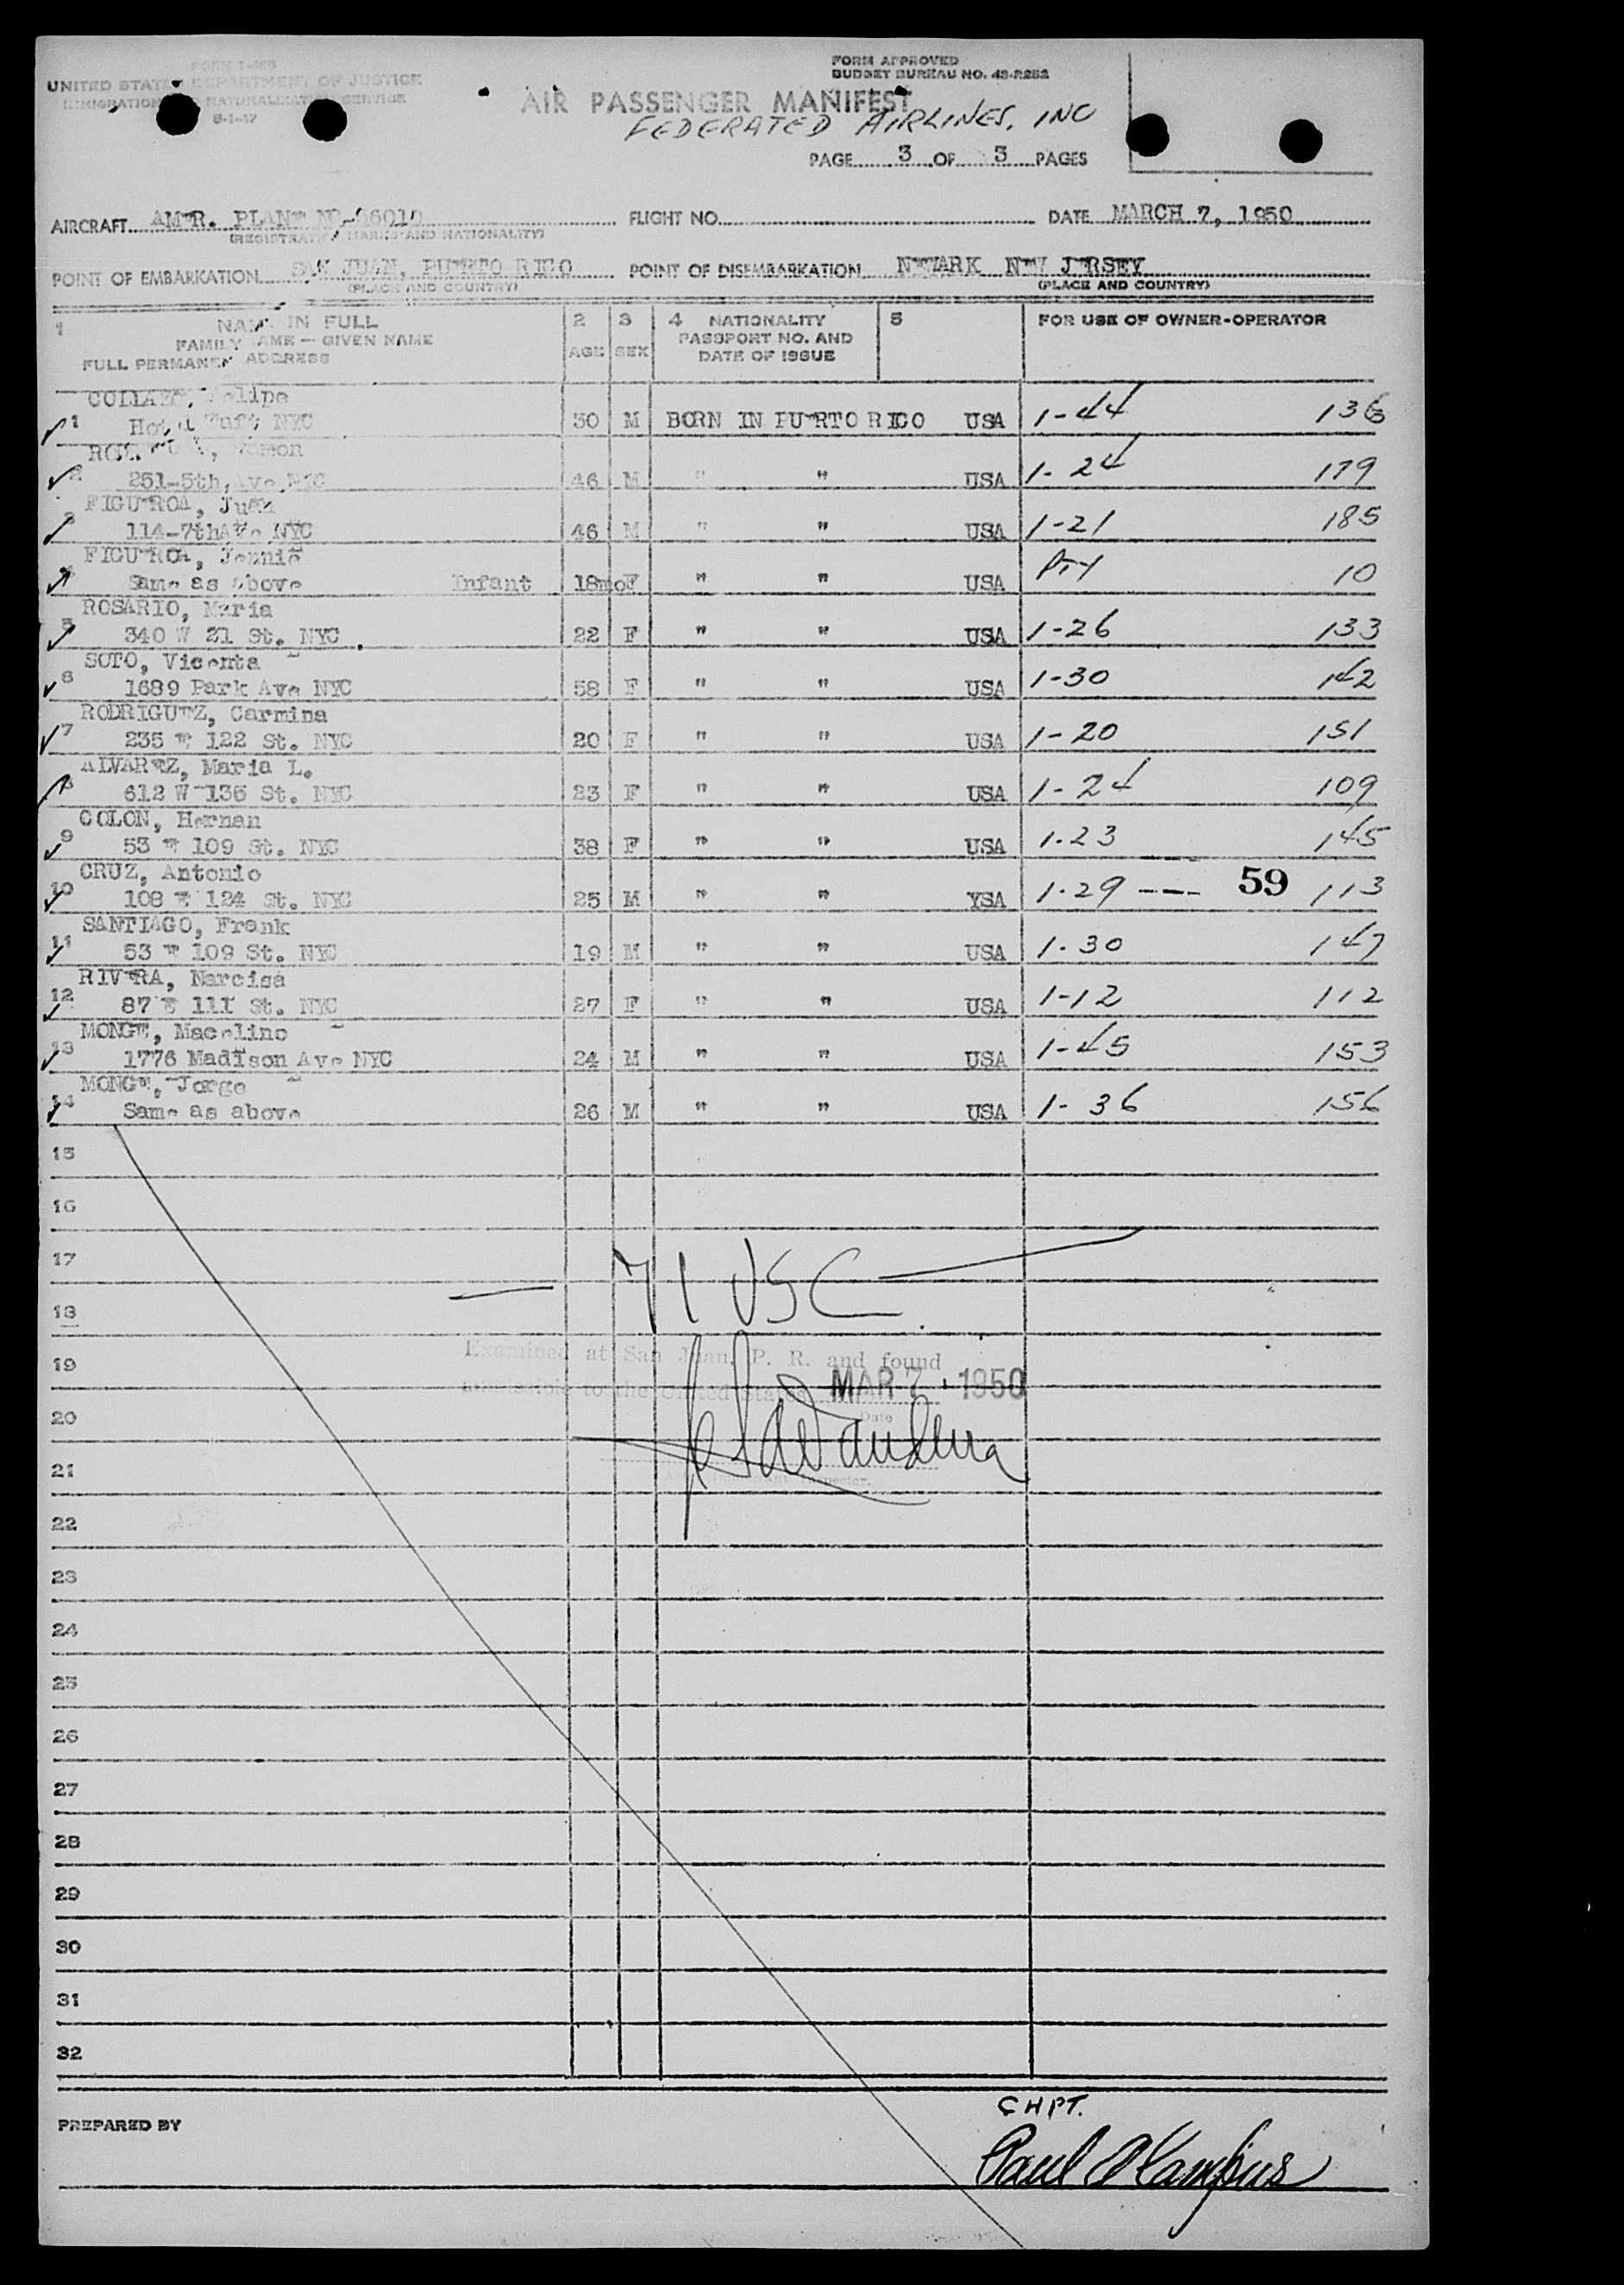 FORM APPROVED
BUDGET BUREAU NO. 43-R252
UNITED STATES DEPARTMENT OF JUSTICE
IMMIGRATION NATURALIZATION SERVICE
8-1-47
AIR PASSENGER MANIFEST
FEDERATED AIRLINES, INC
PAGE 3 OF 3 PAGES
AIRCRAFT AMER. PLANE FLIGHT NO. DATE MARCH 7, 1950
(REGISTRATION MARKS AND NATIONALITY)
POINT OF EMBARKATION SAN JUAN, PUERTO RICO POINT OF DISEMBARKATION NEWARK NEW JERSEY
(PLACE AND COUNTRY) (PLACE AND COUNTRY)
1 NAME IN FULL 2 3 4 NATIONALITY 5 FOR USE OF OWNER-OPERATOR
FAMILY NAME — GIVEN NAME AGE SEX PASSPORT NO. AND
FULL PERMANENT ADDRESS DATE OF ISSUE
Felipe
1 Hotel Taft NYC 30 M BORN IN PUERTO RICO USA 1-44 136
Ramon
2 251-5th, Ave NYC 46 M " " USA 1-24 179
FIGUEROA, Juan
3 114-7thAve NYC 46 M " " USA 1-21 185
FIGUEROA, Jennie
4 Same as above Infant 18mo F " " USA 10
ROSARIO, Maria
5 340 W 21 St. NYC 22 F " " USA 1-26 133
SOTO, Vicenta
6 1689 Park Ave NYC 58 F " " USA 1-30 142
RODRIGUEZ, Carmina
7 235 E 122 St. NYC 20 F " " USA 1-20 151
ALVAREZ, Maria L.
8 612 W 136 St. NYC 23 F " " USA 1-24 109
COLON, Hernan
9 53 E 109 St. NYC 38 F " " USA 1-23 145
CRUZ, Antonio
10 108 E 124 St. NYC 25 M " " YSA 1-29 --- 59 113
SANTIAGO, Frank
11 53 E 109 St. NYC 19 M " " USA 1-30 147
RIVERA, Narcisa
12 87 E 111 St. NYC 27 F " " USA 1-12 112
MONGE, Macelino
13 1776 Madison Ave NYC 24 M " " USA 1-45 153
MONGE, Jorge
14 Same as above 26 M " " USA 1-36 156
15
16
17
71 USC
18
19 Examined at San Juan, P. R. and found
admissible to the United States MAR 7 1950
20 Date
21
22
23
24
25
26
27
28
29
30
31
32
PREPARED BY
CAPT.
Paul